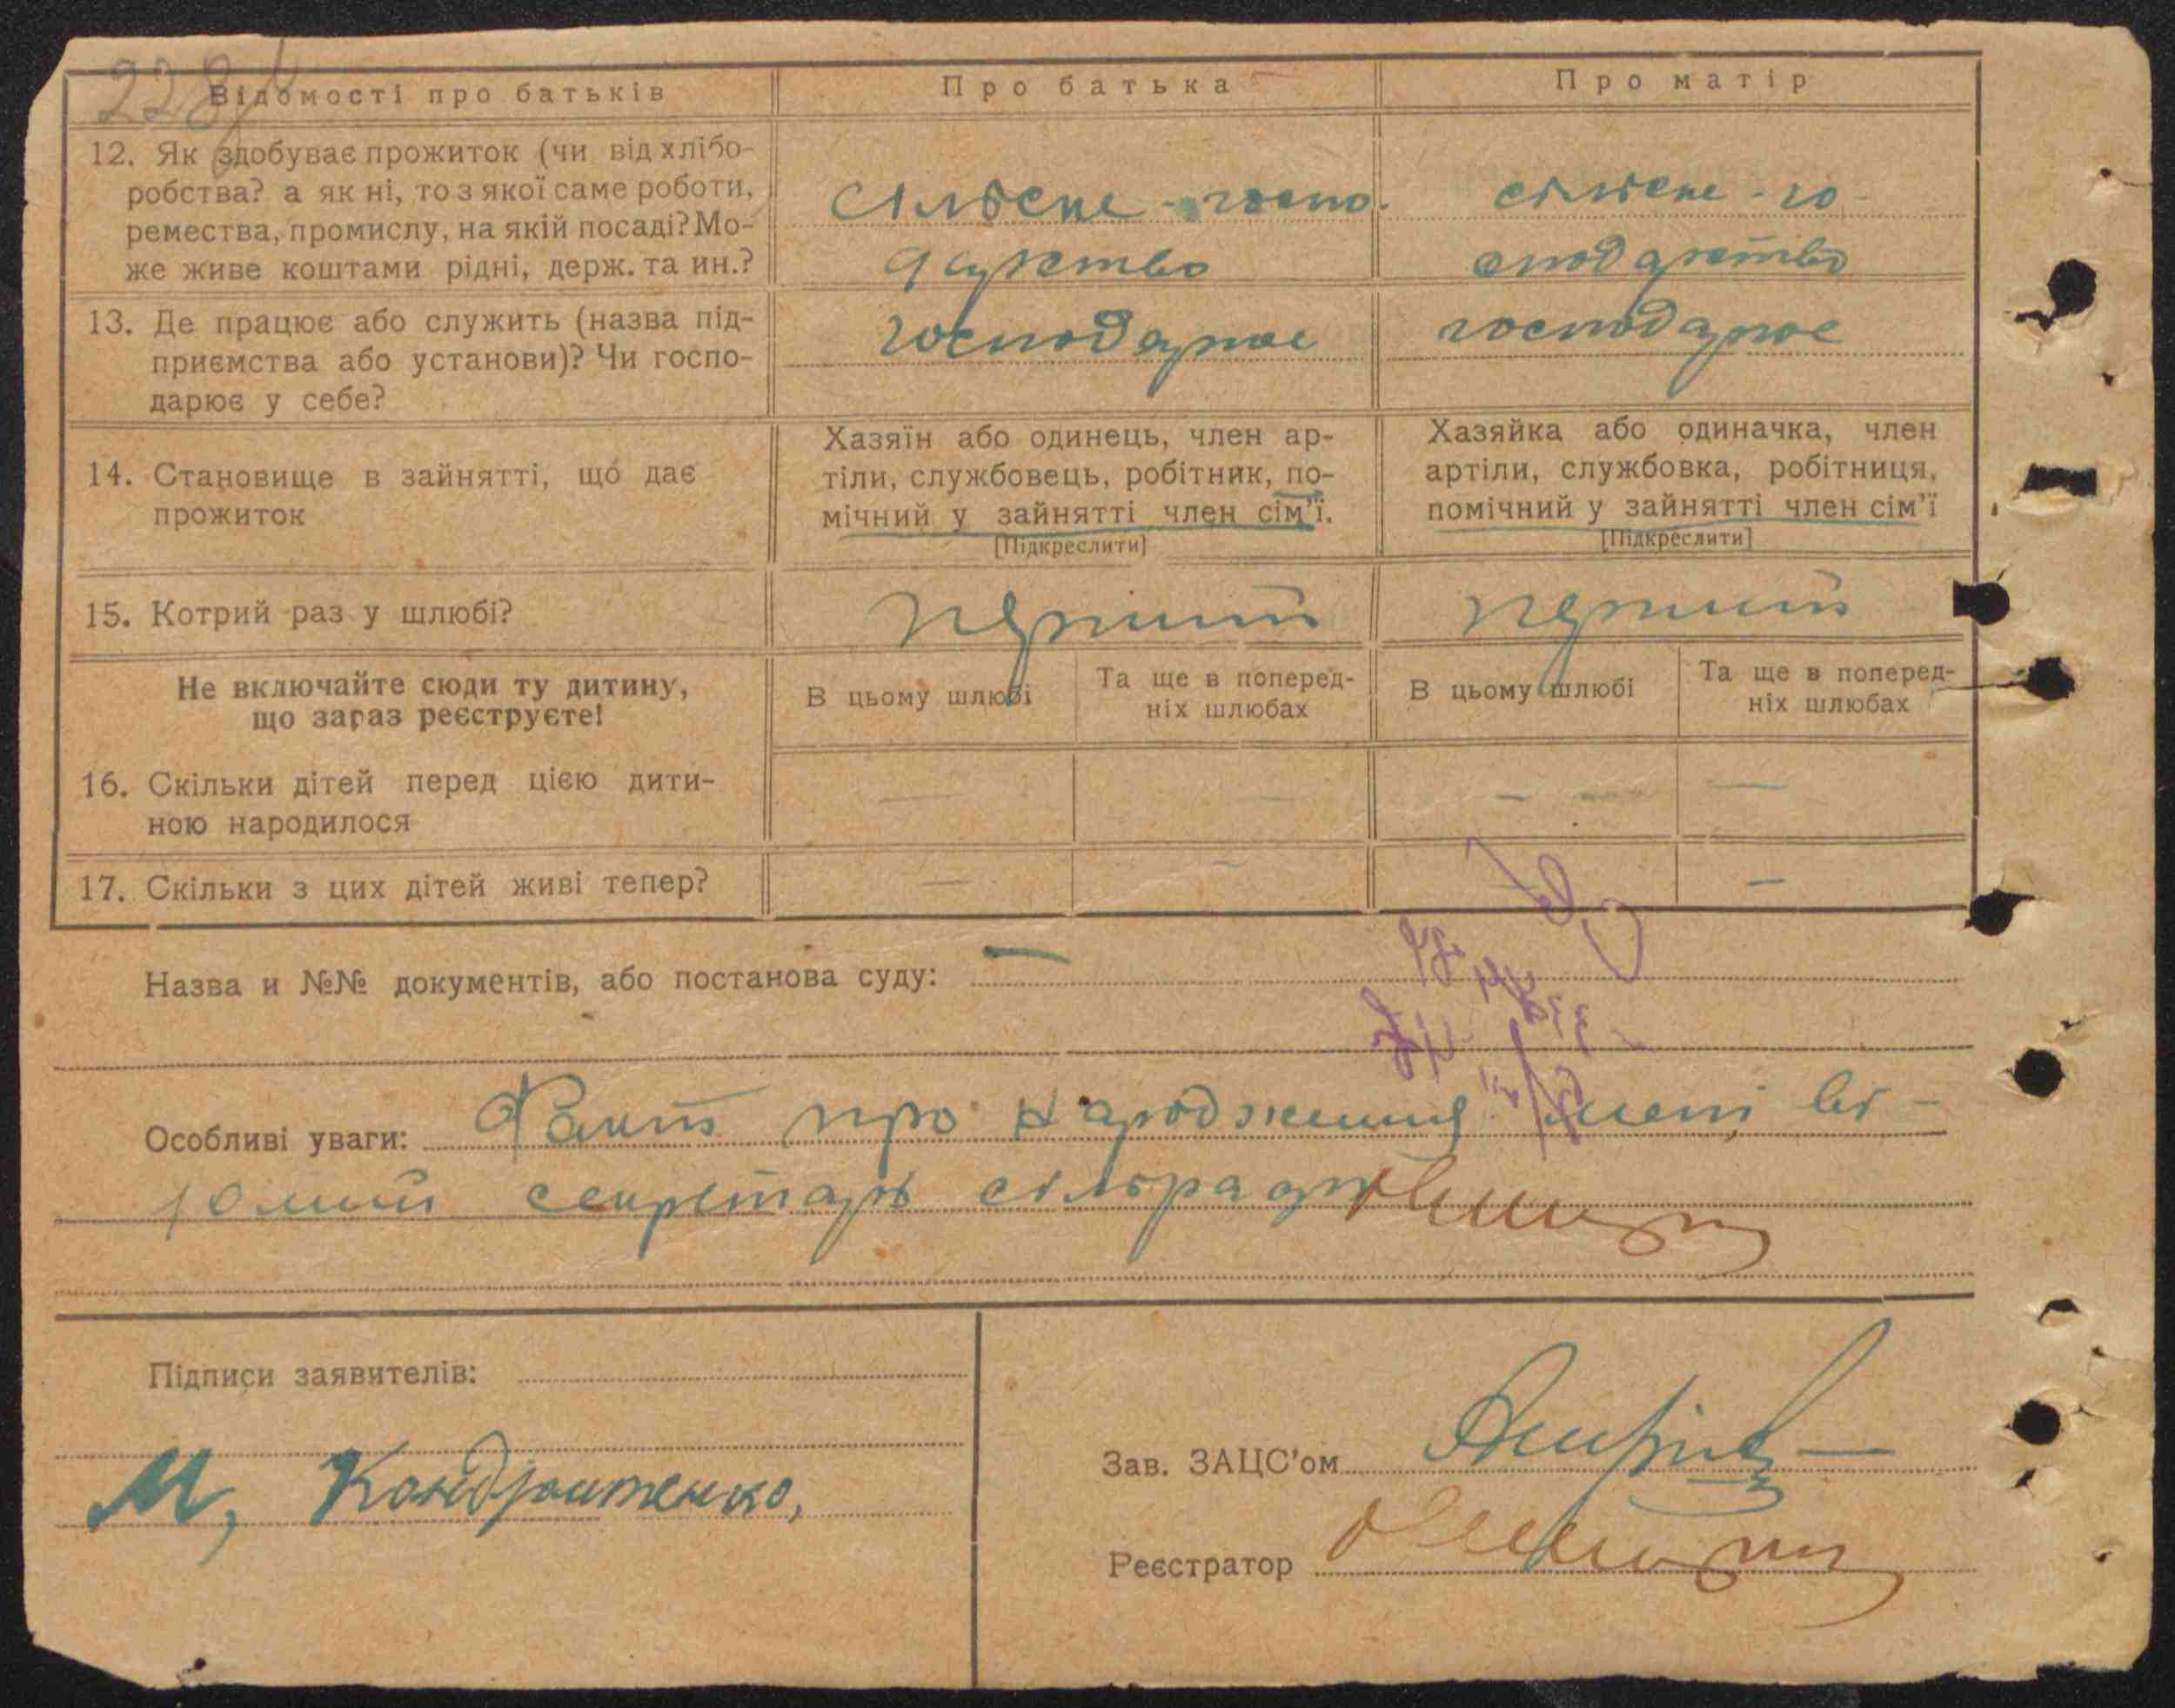 228
Відомості про батьків
Про батька
Про матір
12. Як здобуває прожиток (чи від хлібо-
робства? а як ні, то з якої саме роботи,
ремества, промислу, на якій посаді? Мо-
же живе коштами рідні, держ. та ин.?
сільске-госпо-
дарство
сільске-го-
сподарство
13. Де працює або служить (назва під-
приємства або установи)? Чи госпо-
дарює у себе?
господарює
господарює
14. Становище в зайнятті, що дає
прожиток
Хазяїн або одинець, член ар-
тіли, службовець, робітник, по-
мічний у зайнятті член сім'ї.
[Підкреслити]
Хазяйка або одиначка, член
артіли, службовка, робітниця,
помічний у зайнятті член сім'ї
[Підкреслити]
15. Котрий раз у шлюбі?
перший
перший
Не включайте сюди ту дитину,
що зараз реєструєте!
В цьому шлюбі
Та ще в поперед-
ніх шлюбах
В цьому шлюбі
Та ще в поперед-
ніх шлюбах
16. Скільки дітей перед цією дити-
ною народилося
— — — — —
17. Скільки з цих дітей живі тепер?
— — — —
Назва и №№ документів, або постанова суду: —
Особливі уваги: Факт про народження мені ві-
домий секретарь сільради
Підписи заявителів:
М, Кондратенко,
Зав. ЗАЦС'ом
Реєстратор